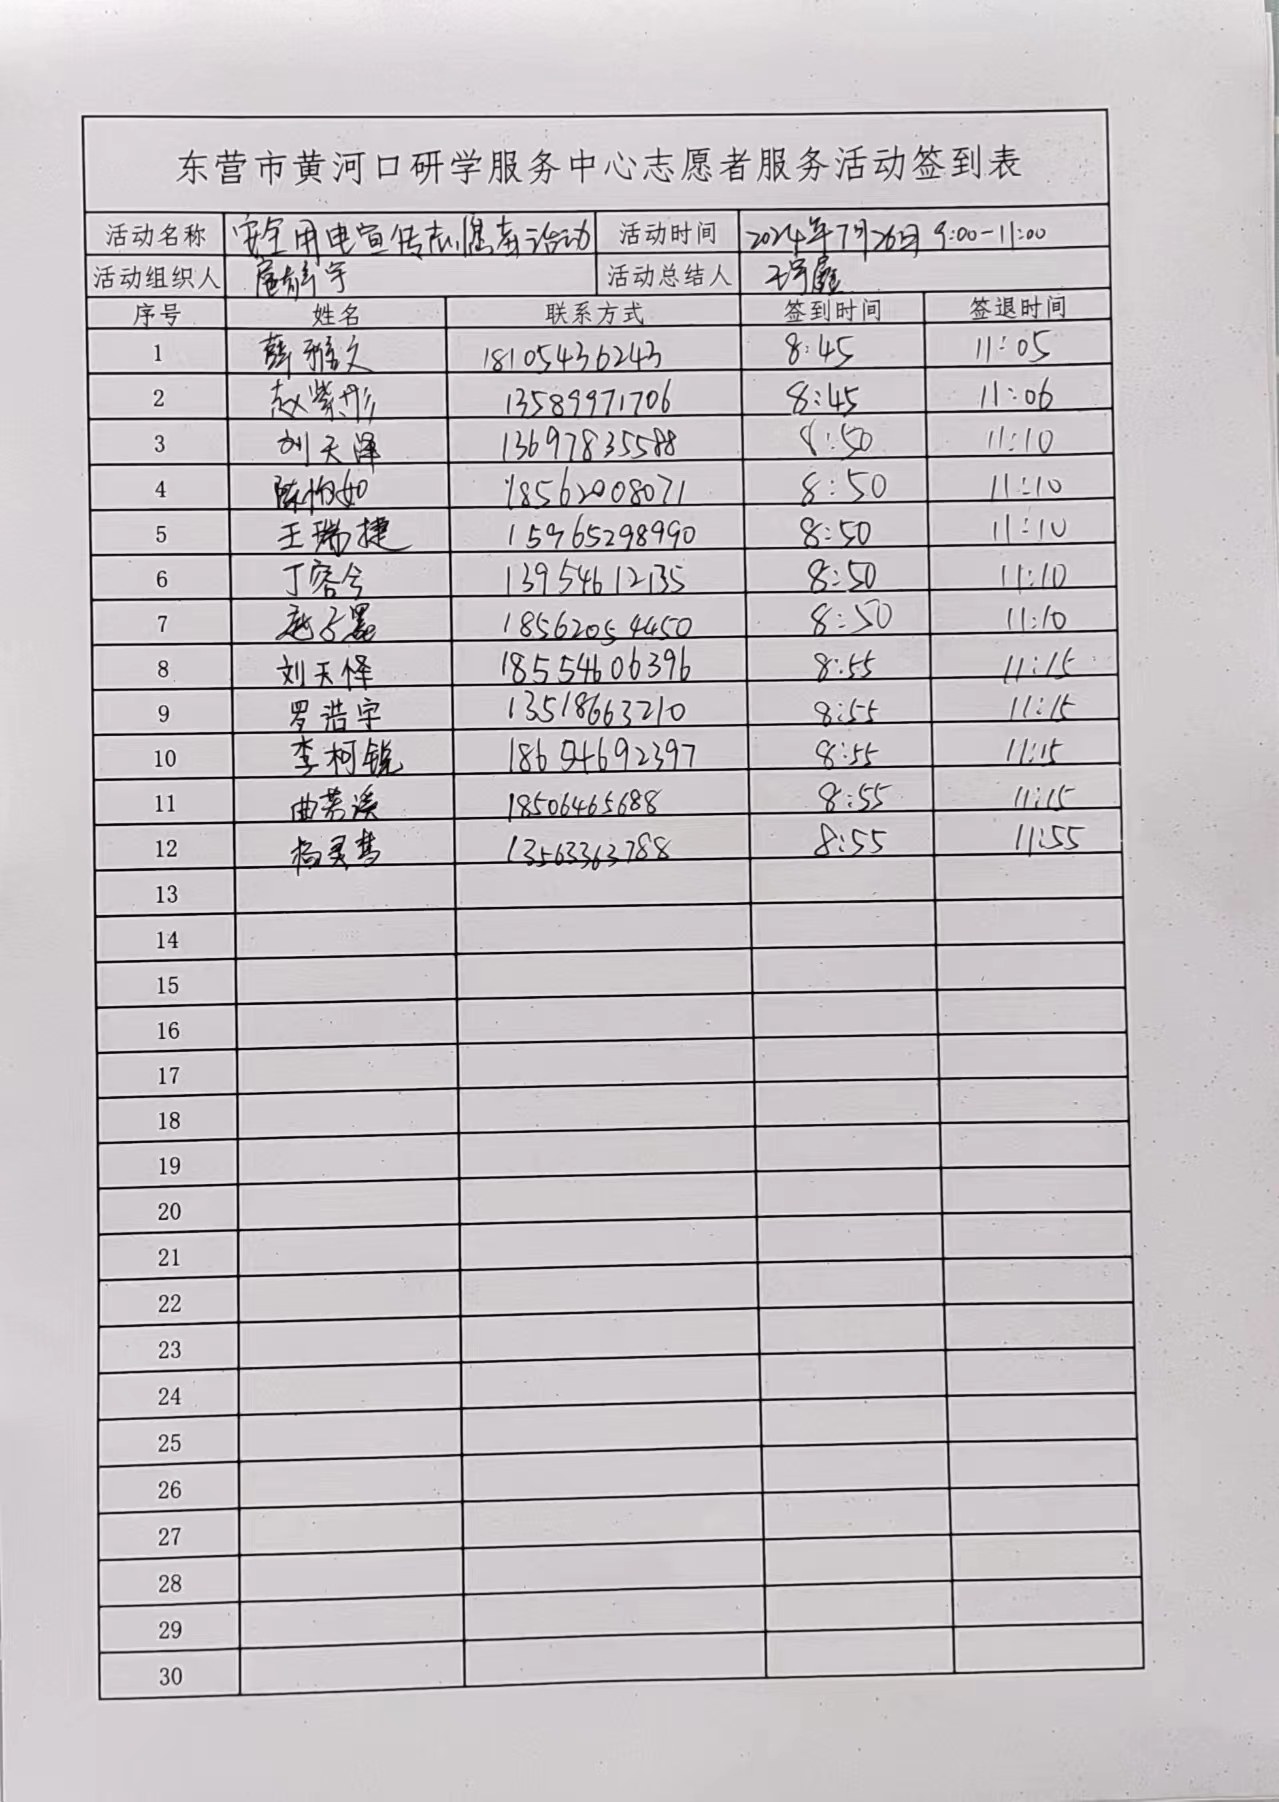 东营市黄河口研学服务中心志愿者服务活动签到表
活动名称 安全用电宣传志愿者活动 活动时间 2024年7月26日 9:00-11:00
活动组织人 宇 活动总结人 王宇鑫
序号 姓名 联系方式 签到时间 签退时间
1 薛雅文 18105436243 8:45 11:05
2 赵紫彤 13589971706 8:45 11:06
3 刘天泽 13697835588 8:50 11:10
4 陈怡如 18562008071 8:50 11:10
5 王瑞捷 15965298990 8:50 11:10
6 丁容今 13954612135 8:50 11:10
7 18562054450 8:50 11:10
8 刘天怿 18554606396 8:55 11:15
9 罗浩宇 13518663210 8:55 11:15
10 李柯锐 18654692397 8:55 11:15
11 曲芳溪 18506465688 8:55 11:15
12 杨灵梦 13563363788 8:55 11:55
13
14
15
16
17
18
19
20
21
22
23
24
25
26
27
28
29
30